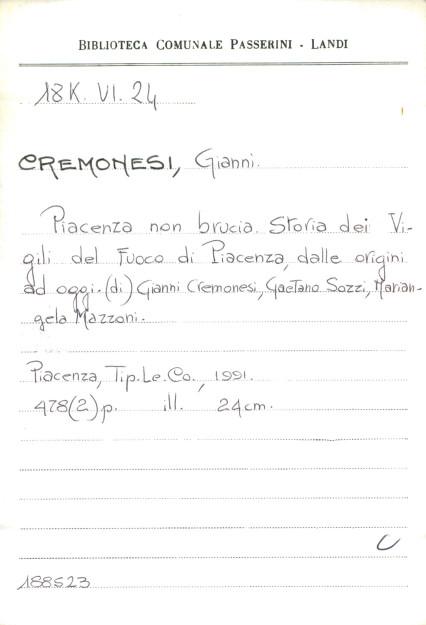 BIBLIOTECA COMUNALE PASSERINI - LANDI
18K. VI. 24
CREMONESI, Gianni.
Piacenza non brucia. Storia dei Vi-
gili del Fuoco di Piacenza, dalle origini
ad oggi. (di) Gianni Cremonesi, Gaetano Sozzi, Marian-
gela Mazzoni.
Piacenza, Tip. Le. Co., 1991.
478(2) p. ill. 24 cm.
C
188523